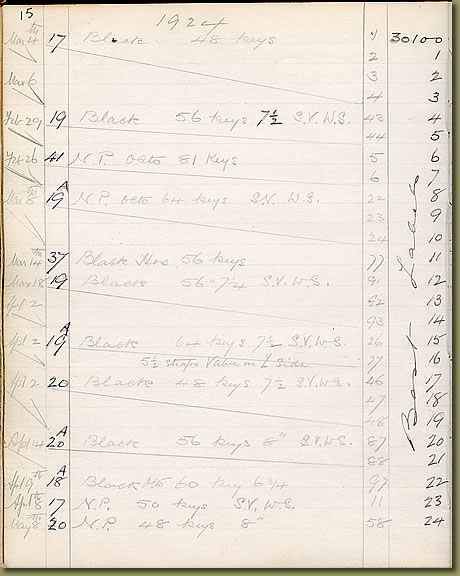 15 1924
Mar 4th 17 Black 48 keys 1 30100
2 1
Mar 6 3 2
4 3
Feb 29 19 Black 56 keys 7½ S.V. W.S. 43 4
44 5
Feb 26 41 N.P. octo 81 Keys 5 6
6 7
Mar 8th 19A N.P. octo 64 keys S.V. W.S. 22 8
23 9
24 10
Mar 14th 37 Black 56 keys 77 11
Mar 18 19 Black 56 " 7¼ S.V. W.S. 91 12
Apl 2 92 13
93 14
Apl 2 19A Black 64 keys 7½ S.V. W.S. 26 15
5½ straps Valve on L Side 27 16
Apl 2 20 Black 48 keys 7½ S.V. W.S. 46 17
47 18
48 19
Apl 14 20A Black 56 keys 8" S.V. W.S. 87 20
88 21
Apl 9th 18A Black octo 60 key 6¾ 97 22
Apl 8th 17 N.P. 50 keys S.V. W.S. 11 23
May 8th 20 N.P. 48 keys 8" 58 24
Best Labels